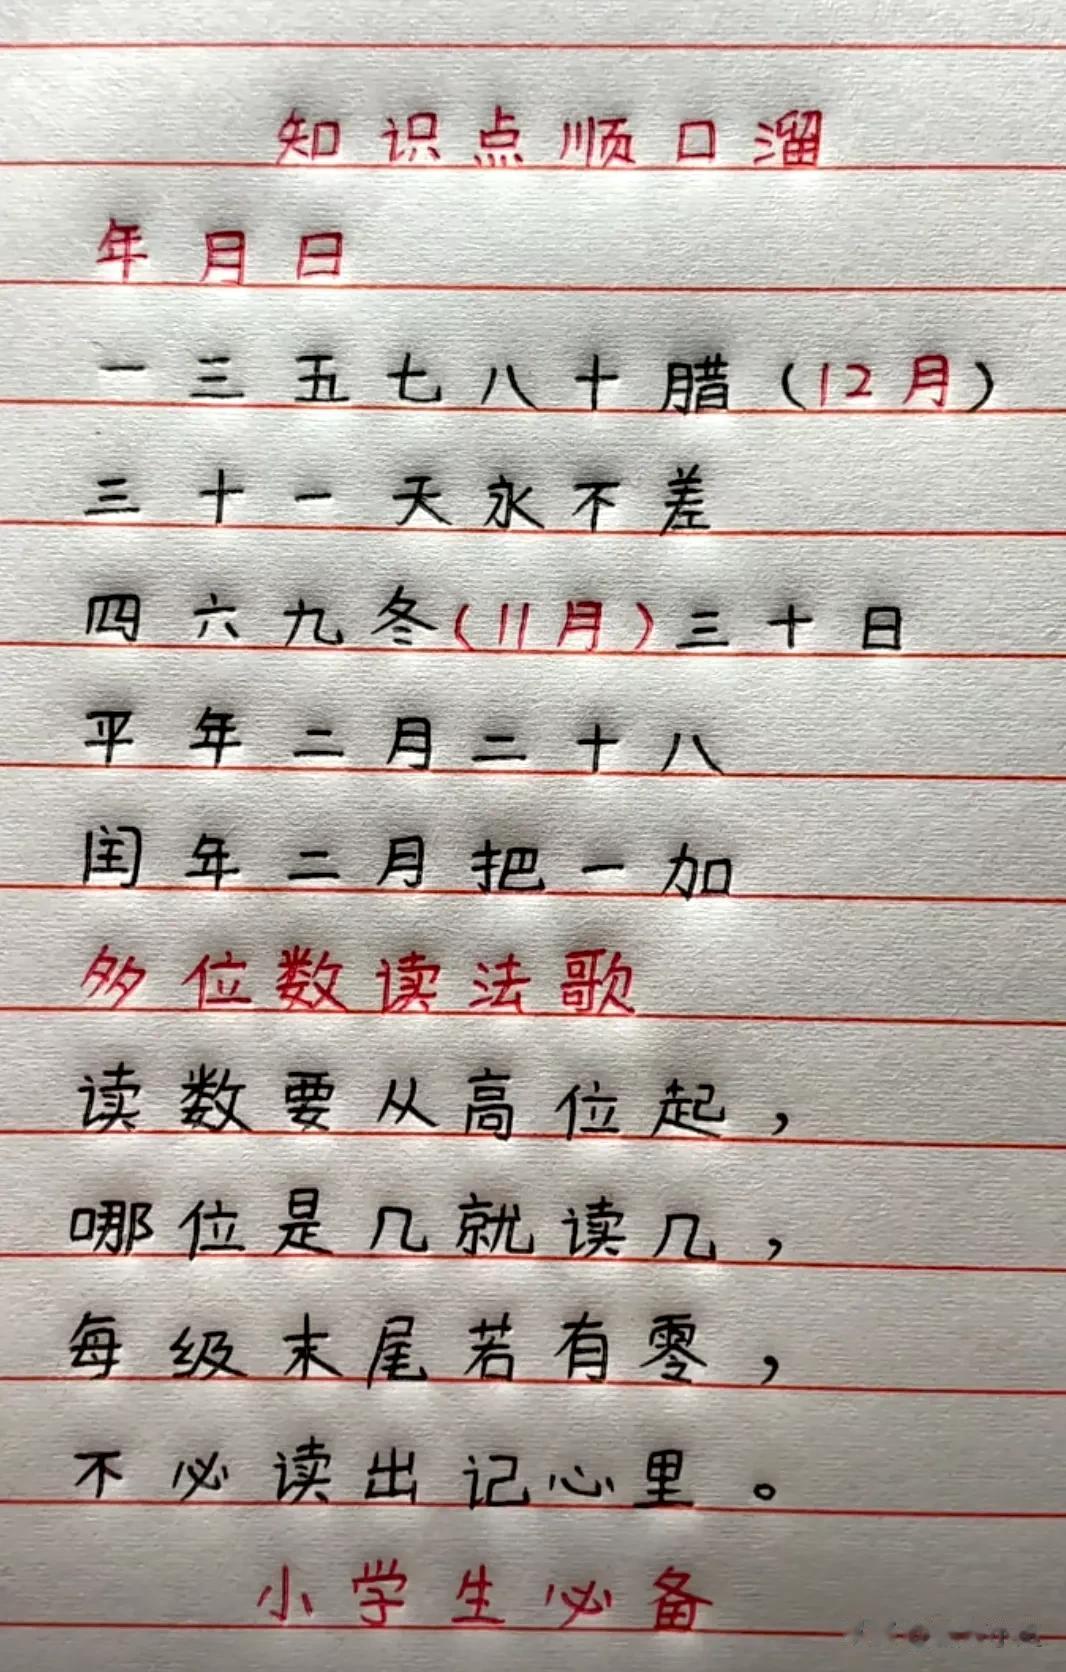 知识点顺口溜
年月日
一三五七八十腊(12月)
三十一天永不差
四六九冬(11月)三十日
平年二月二十八
闰年二月把一加
多位数读法歌
读数要从高位起，
哪位是几就读几，
每级末尾若有零，
不必读出记心里。
小学生必备